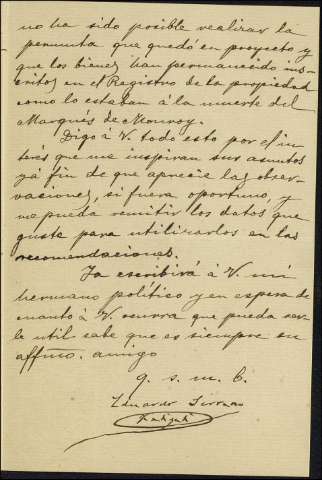 no ha sido posible realizar la
permuta que quedó en proyecto y
que los bienes han permanecido ins-
critos en el Registro de la propiedad
como lo estaban á la muerte del
Marqués de Monroy.
Digo á V. todo esto por el in-
terés que me inspiran sus asuntos
y á fin de que aprecie las obser-
vaciones, si fuera oportuno, y
me pueda remitir los datos que
guste para utilizarlos en las
recomendaciones.
Ya escribirá á V. mi
hermano político y en espera de
cuanto á V. ocurra que pueda ser-
le util sabe que es siempre su
affmo. amigo
q. s. m. b.
Eduardo Serrano